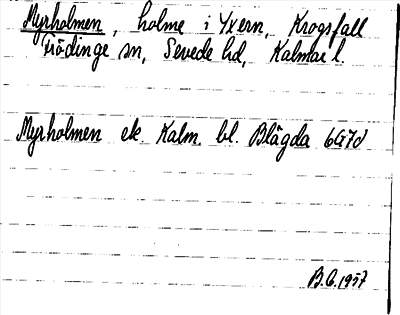 Myrholmen, holme i Yxern, Krogsfall
Frödinge sn, Sevede hd, Kalmar l.
Myrholmen ek Kalm. bl. Blägda 6G7d
B.G. 1957